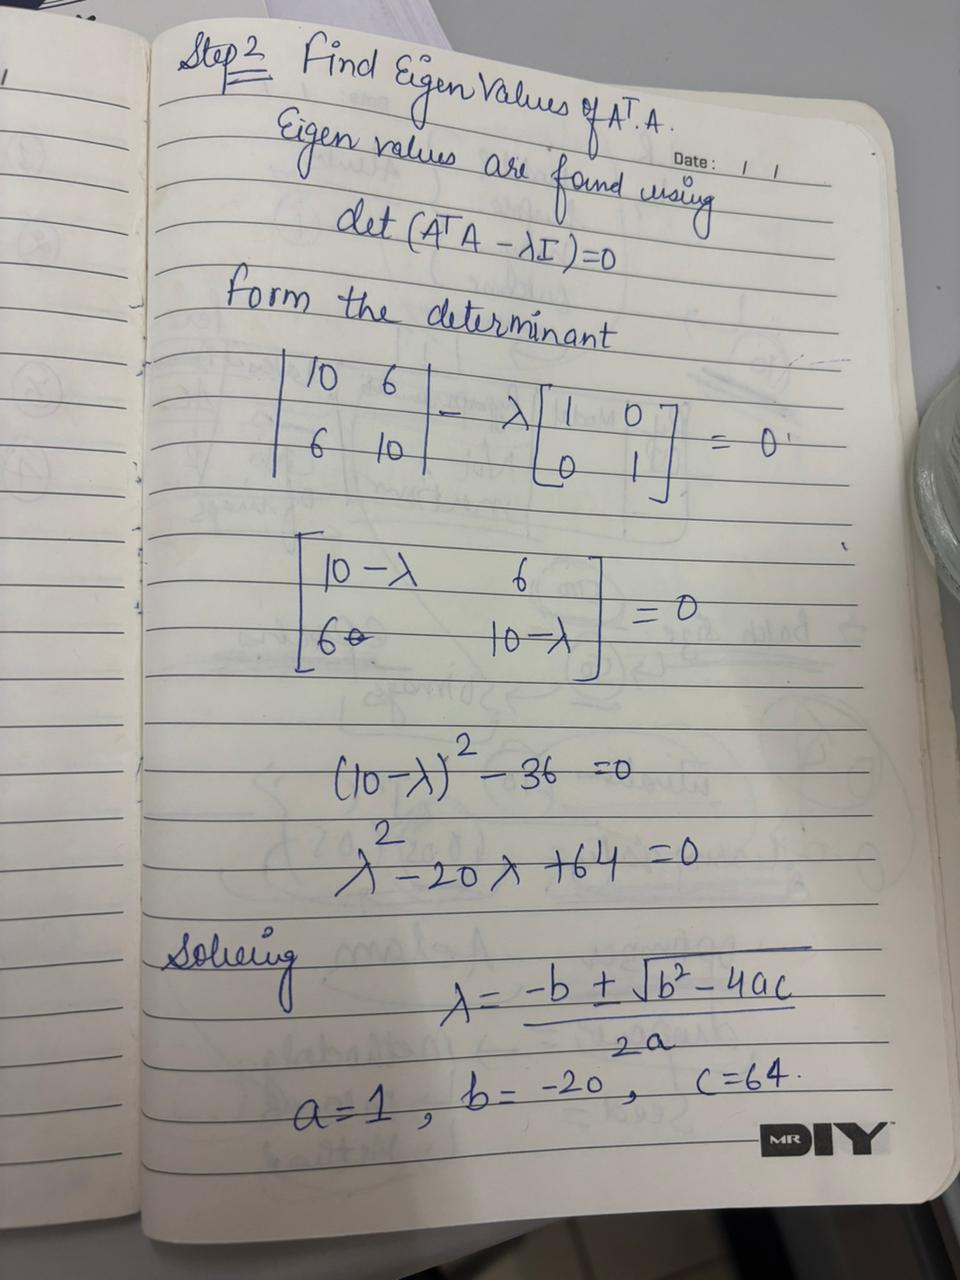 Step 2 Find Eigen Values of AᵀA.
Date: / /
Eigen values are found using
det (AᵀA - λI) = 0
form the determinant
| 10 6 | - λ [ 1 0 ] = 0
| 6 10 | [ 0 1 ]
[ 10-λ 6 ] = 0
[ 6 10-λ ]
(10-λ)² - 36 = 0
λ² - 20λ + 64 = 0
Solving
λ = -b ± √b² - 4ac
2a
a = 1 , b = -20 , c = 64.
MR DIY